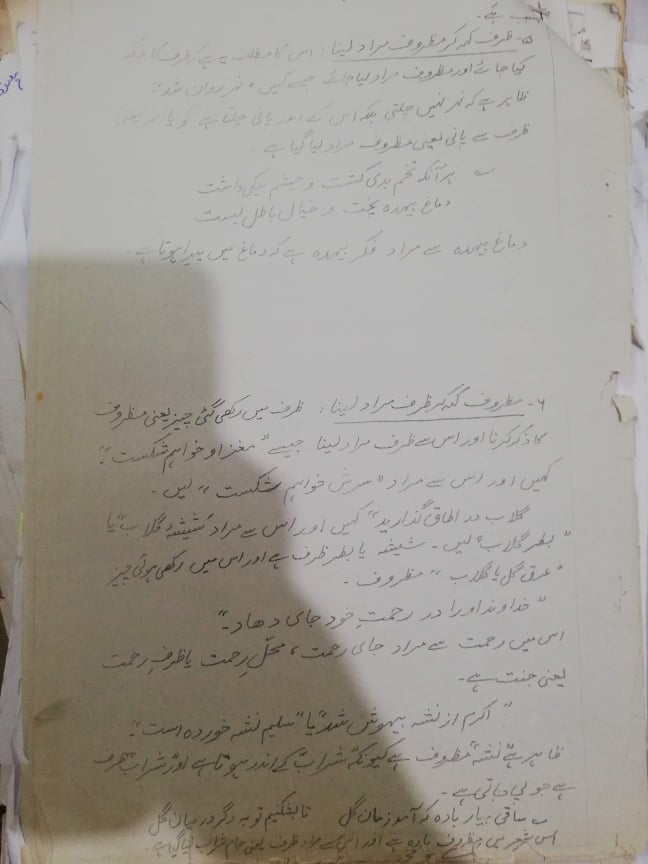 سبب ہے۔
۵۔ ظرف کہہ کر مظروف مراد لینا: اس کا مطلب یہ ہے کہ ظرف کا ذکر
کیا جائے اور مظروف مراد لیا جائے جیسے کہیں "نہر روان شد"
ظاہر ہے کہ نہر نہیں چلتی بلکہ اس کے اندر پانی چلتا ہے گویا نہر یعنی
ظرف سے پانی یعنی مظروف مراد لیا گیا ہے۔
ہر آنکہ تخم بدی کشت و چشم نیکی داشت
دماغ بیہدہ پخت و خیال باطل بست
دماغ بیہدہ سے مراد فکر بیہدہ ہے کہ دماغ میں پیدا ہوتا ہے۔
۶۔ مظروف کہہ کر ظرف مراد لینا: ظرف میں رکھی گئی چیز یعنی مظروف
کا ذکر کرنا اور اس سے ظرف مراد لینا جیسے "مغز او خواہم شکست"
کہیں اور اس سے مراد "سرش خواہم شکست" لیں۔
گلاب در اطاق گذارید" کہیں اور اس سے مراد "شیشۂ گلاب" یا
"بطر گلاب" لیں۔ شیشہ یا بطر ظرف ہے اور اس میں رکھی ہوئی چیز
"عرق گل یا گلاب" مظروف۔
"خداوند او را در رحمتِ خود جای دهاد۔"
اس میں رحمت سے مراد جای رحمت، محلِّ رحمت یا ظرفِ رحمت
یعنی جنت ہے۔
"اکرم از نشہ بیہوش شد" یا "سلیم نشہ خوردہ است"
ظاہر ہے "نشہ" مظروف ہے کیونکہ "شراب" کے اندر ہوتا ہے اور "شراب" ظرف
ہے جو پی جاتی ہے۔
ساقی بیار بادہ کہ آمد زمان گل تا بشکنیم توبہ دگر درمیان گل
اس شعر میں مظروف بادہ ہے اور اس سے مراد ظرف یعنی جام شراب لیا گیا ہے۔